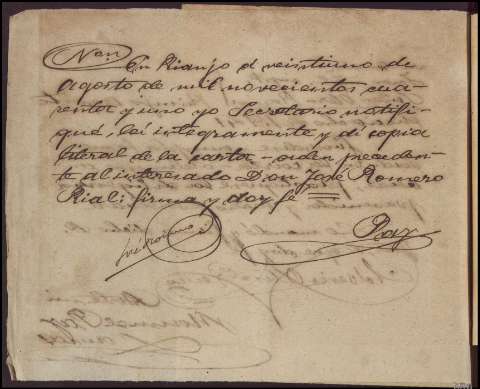 Non
En Rianjo á veintiuno de
agosto de mil novecientos cua-
renta y uno yo Secretario notifi-
qué, leí integramente y dí copia
literal de la carta-orden preceden-
te al interesado Don José Romero
Rial: firma y doy fé =
José Romero
Paz